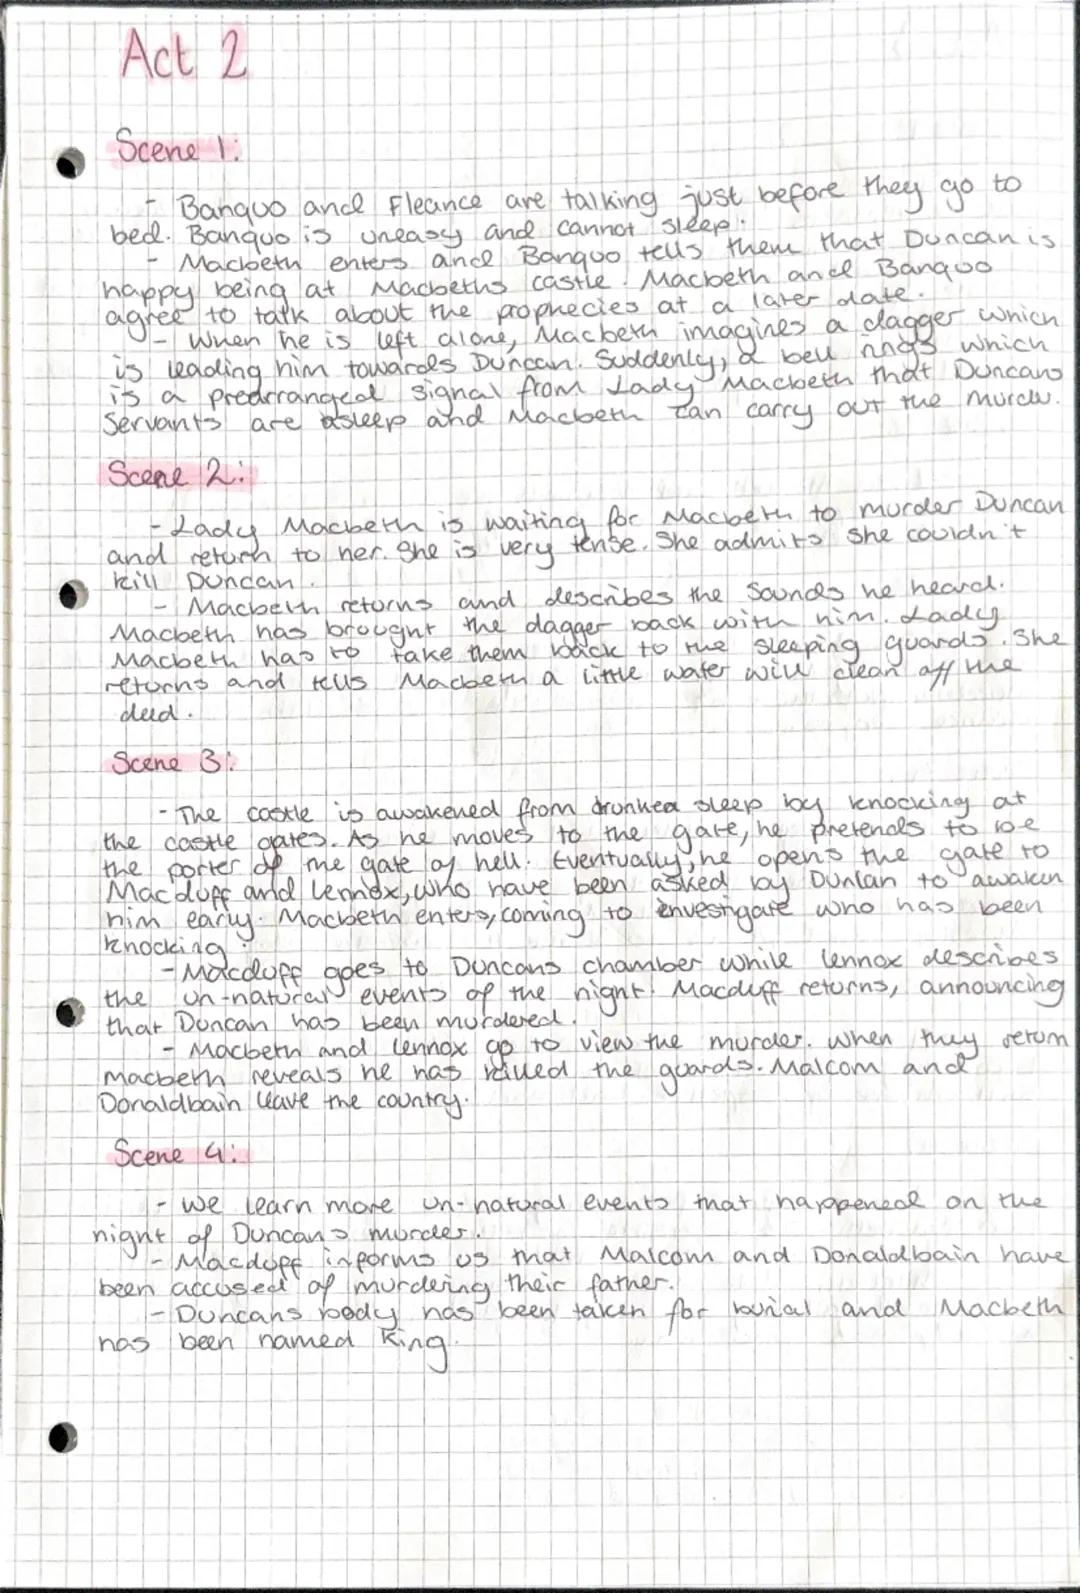 Act 2
Scene 1:
- Banquo and Fleance are talking just before they go to
bed. Banquo is uneasy and cannot sleep.
- Macbeth enters and Banquo tells them that Duncan is
happy being at Macbeths castle. Macbeth and Banquo
agree to talk about the prophecies at a later date.
- When he is left alone, Macbeth imagines a dagger which
is leading him towards Duncan. Suddenly, a bell rings which
is a prearranged signal from Lady Macbeth that Duncans
Servants are asleep and Macbeth can carry out the murder.
Scene 2:
- Lady Macbeth is waiting for Macbeth to murder Duncan
and return to her. She is very tense. She admits she couldn't
kill Duncan.
- Macbeth returns and describes the sounds he heard.
Macbeth has brought the dagger back with him. Lady
Macbeth has to take them back to the sleeping guards. She
returns and tells Macbeth a little water will clean off the
deed.
Scene 3:
- The castle is awakened from drunken sleep by knocking at
the castle gates. As he moves to the gate, he pretends to be
the porter of the gate of hell. Eventually, he opens the gate to
Macduff and Lennox, who have been asked by Dunlan to awaken
him early. Macbeth enters, coming to investigate who has been
knocking.
- Macduff goes to Duncans chamber while Lennox describes
the un-natural events of the night. Macduff returns, announcing
that Duncan has been murdered.
- Macbeth and Lennox go to view the murder. When they return
macbeth reveals he has killed the guards. Malcom and
Donaldbain leave the country.
Scene 4:
- We learn more un-natural events that happened on the
night of Duncans murder.
- Macduff informs us that Malcom and Donaldbain have
been accused of murdering their father.
- Duncans body has been taken for burial and Macbeth
has been named King.